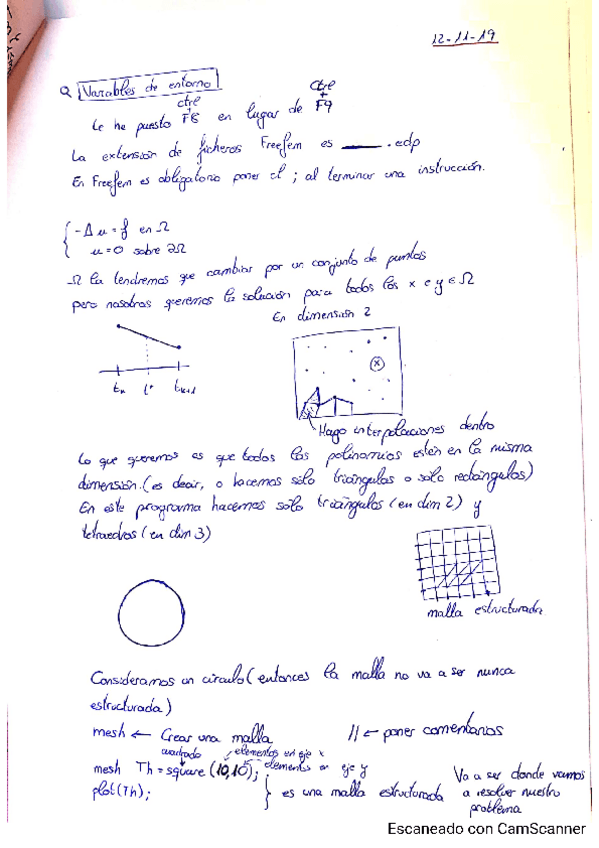 12-11-19
Variables de entorno
Le he puesto ctrl + F8 en lugar de ctrl + F9
La extensión de ficheros Freefem es ____ .edp
En Freefem es obligatorio poner el ; al terminar una instrucción.
-Δu = f en Ω
u = 0 sobre ∂Ω
Ω la tendremos que cambiar por un conjunto de puntos
pero nosotros queremos la solución para todos los x e y ∈ Ω
En dimensión 2
tn t* tn+1
Hago interpolaciones dentro
Lo que queremos es que todos los polinomios estén en la misma
dimensión. (es decir, o hacemos sólo triángulos o sólo rectángulos)
En este programa hacemos solo triángulos (en dim 2) y
tetraedros (en dim 3)
malla estructurada
Consideramos un círculo (entonces la malla no va a ser nunca
estructurada)
mesh ← Crear una malla // ← poner comentarios
cuadrado elementos en eje x
mesh Th = square (10,10); elementos en eje y
plot(Th); } es una malla estructurada
Va a ser donde vamos
a resolver nuestro
problema
Escaneado con CamScanner